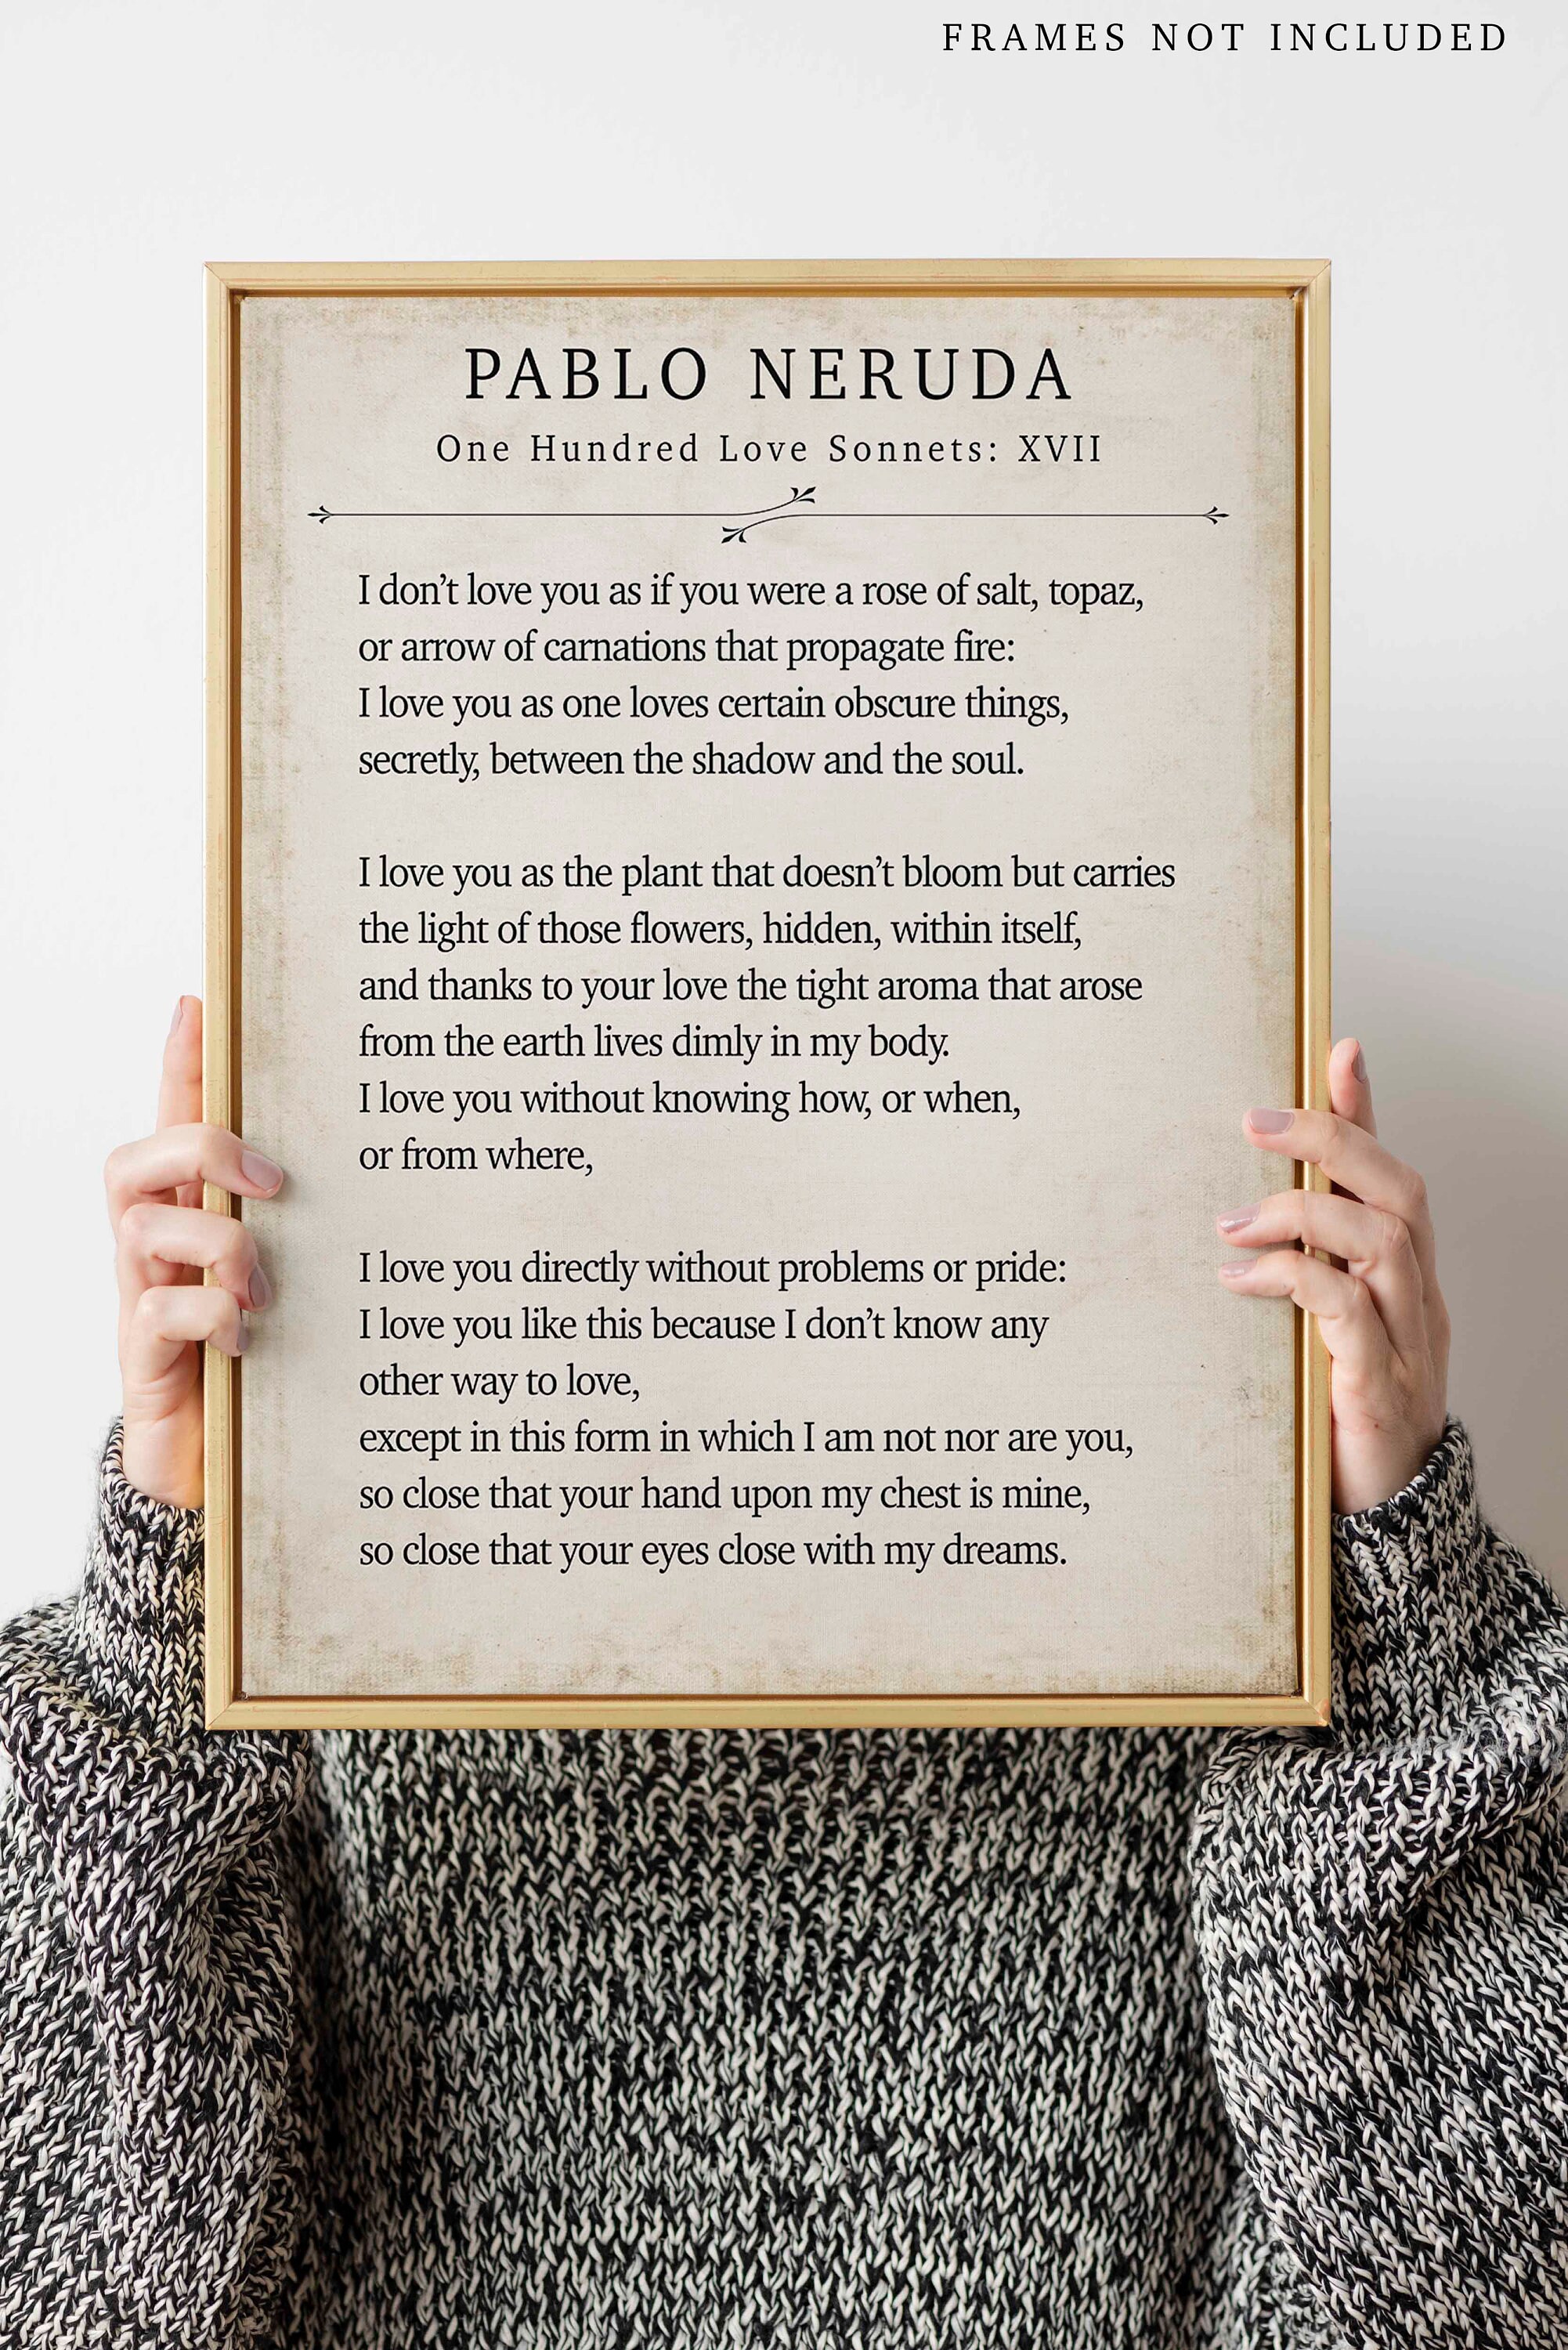 FRAMES NOT INCLUDED
PABLO NERUDA
One Hundred Love Sonnets: XVII
I don’t love you as if you were a rose of salt, topaz,
or arrow of carnations that propagate fire:
I love you as one loves certain obscure things,
secretly, between the shadow and the soul.
I love you as the plant that doesn’t bloom but carries
the light of those flowers, hidden, within itself,
and thanks to your love the tight aroma that arose
from the earth lives dimly in my body.
I love you without knowing how, or when,
or from where,
I love you directly without problems or pride:
I love you like this because I don’t know any
other way to love,
except in this form in which I am not nor are you,
so close that your hand upon my chest is mine,
so close that your eyes close with my dreams.